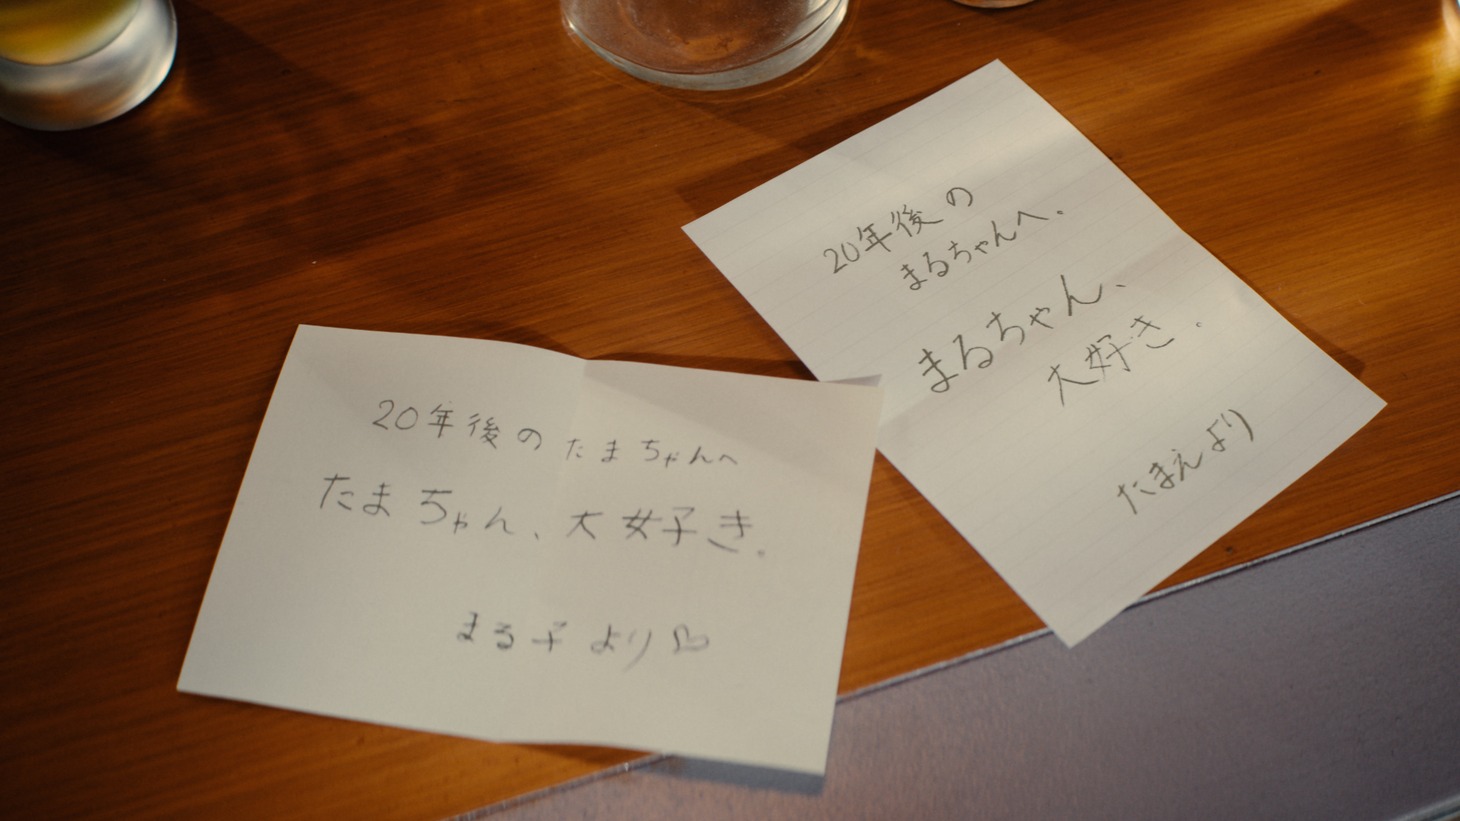 20年後のたまちゃんへ
たまちゃん、大好き。
まる子より♡
20年後の
まるちゃんへ。
まるちゃん、
大好き。
たまえより